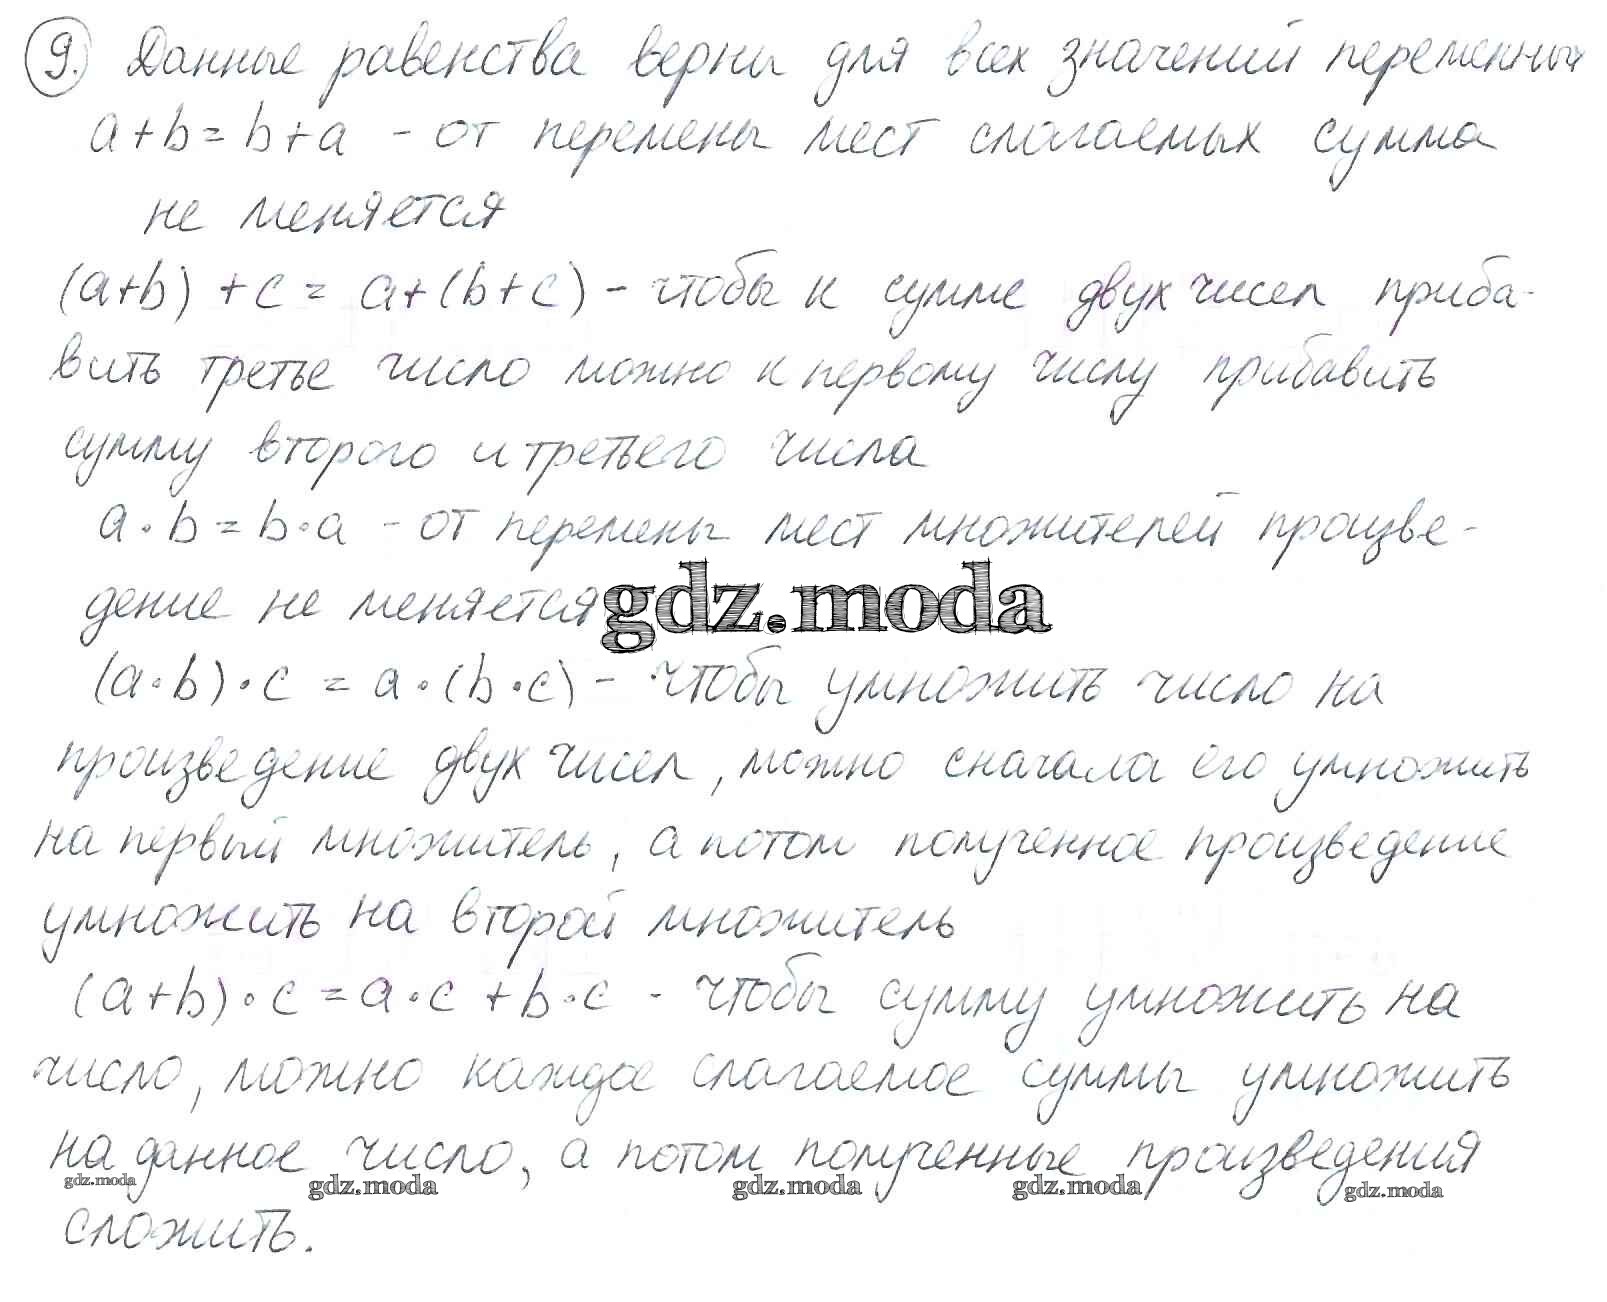 9. Данные равенства верны для всех значений переменных
a+b=b+a - от перемены мест слагаемых сумма
не меняется
(a+b)+c = a+(b+c) - чтобы к сумме двух чисел приба-
вить третье число можно к первому числу прибавить
сумму второго и третьего числа
a·b=b·a - от перемены мест множителей произве-
дение не меняется
gdz.moda
(a·b)·c = a·(b·c) - чтобы умножить число на
произведение двух чисел, можно сначала его умножить
на первый множитель, а потом полученное произведение
умножить на второй множитель
(a+b)·c=a·c+b·c - чтобы сумму умножить на
число, можно каждое слагаемое суммы умножить
на данное число, а потом полученные произведения
gdz.moda gdz.moda gdz.moda gdz.moda gdz.moda
сложить.